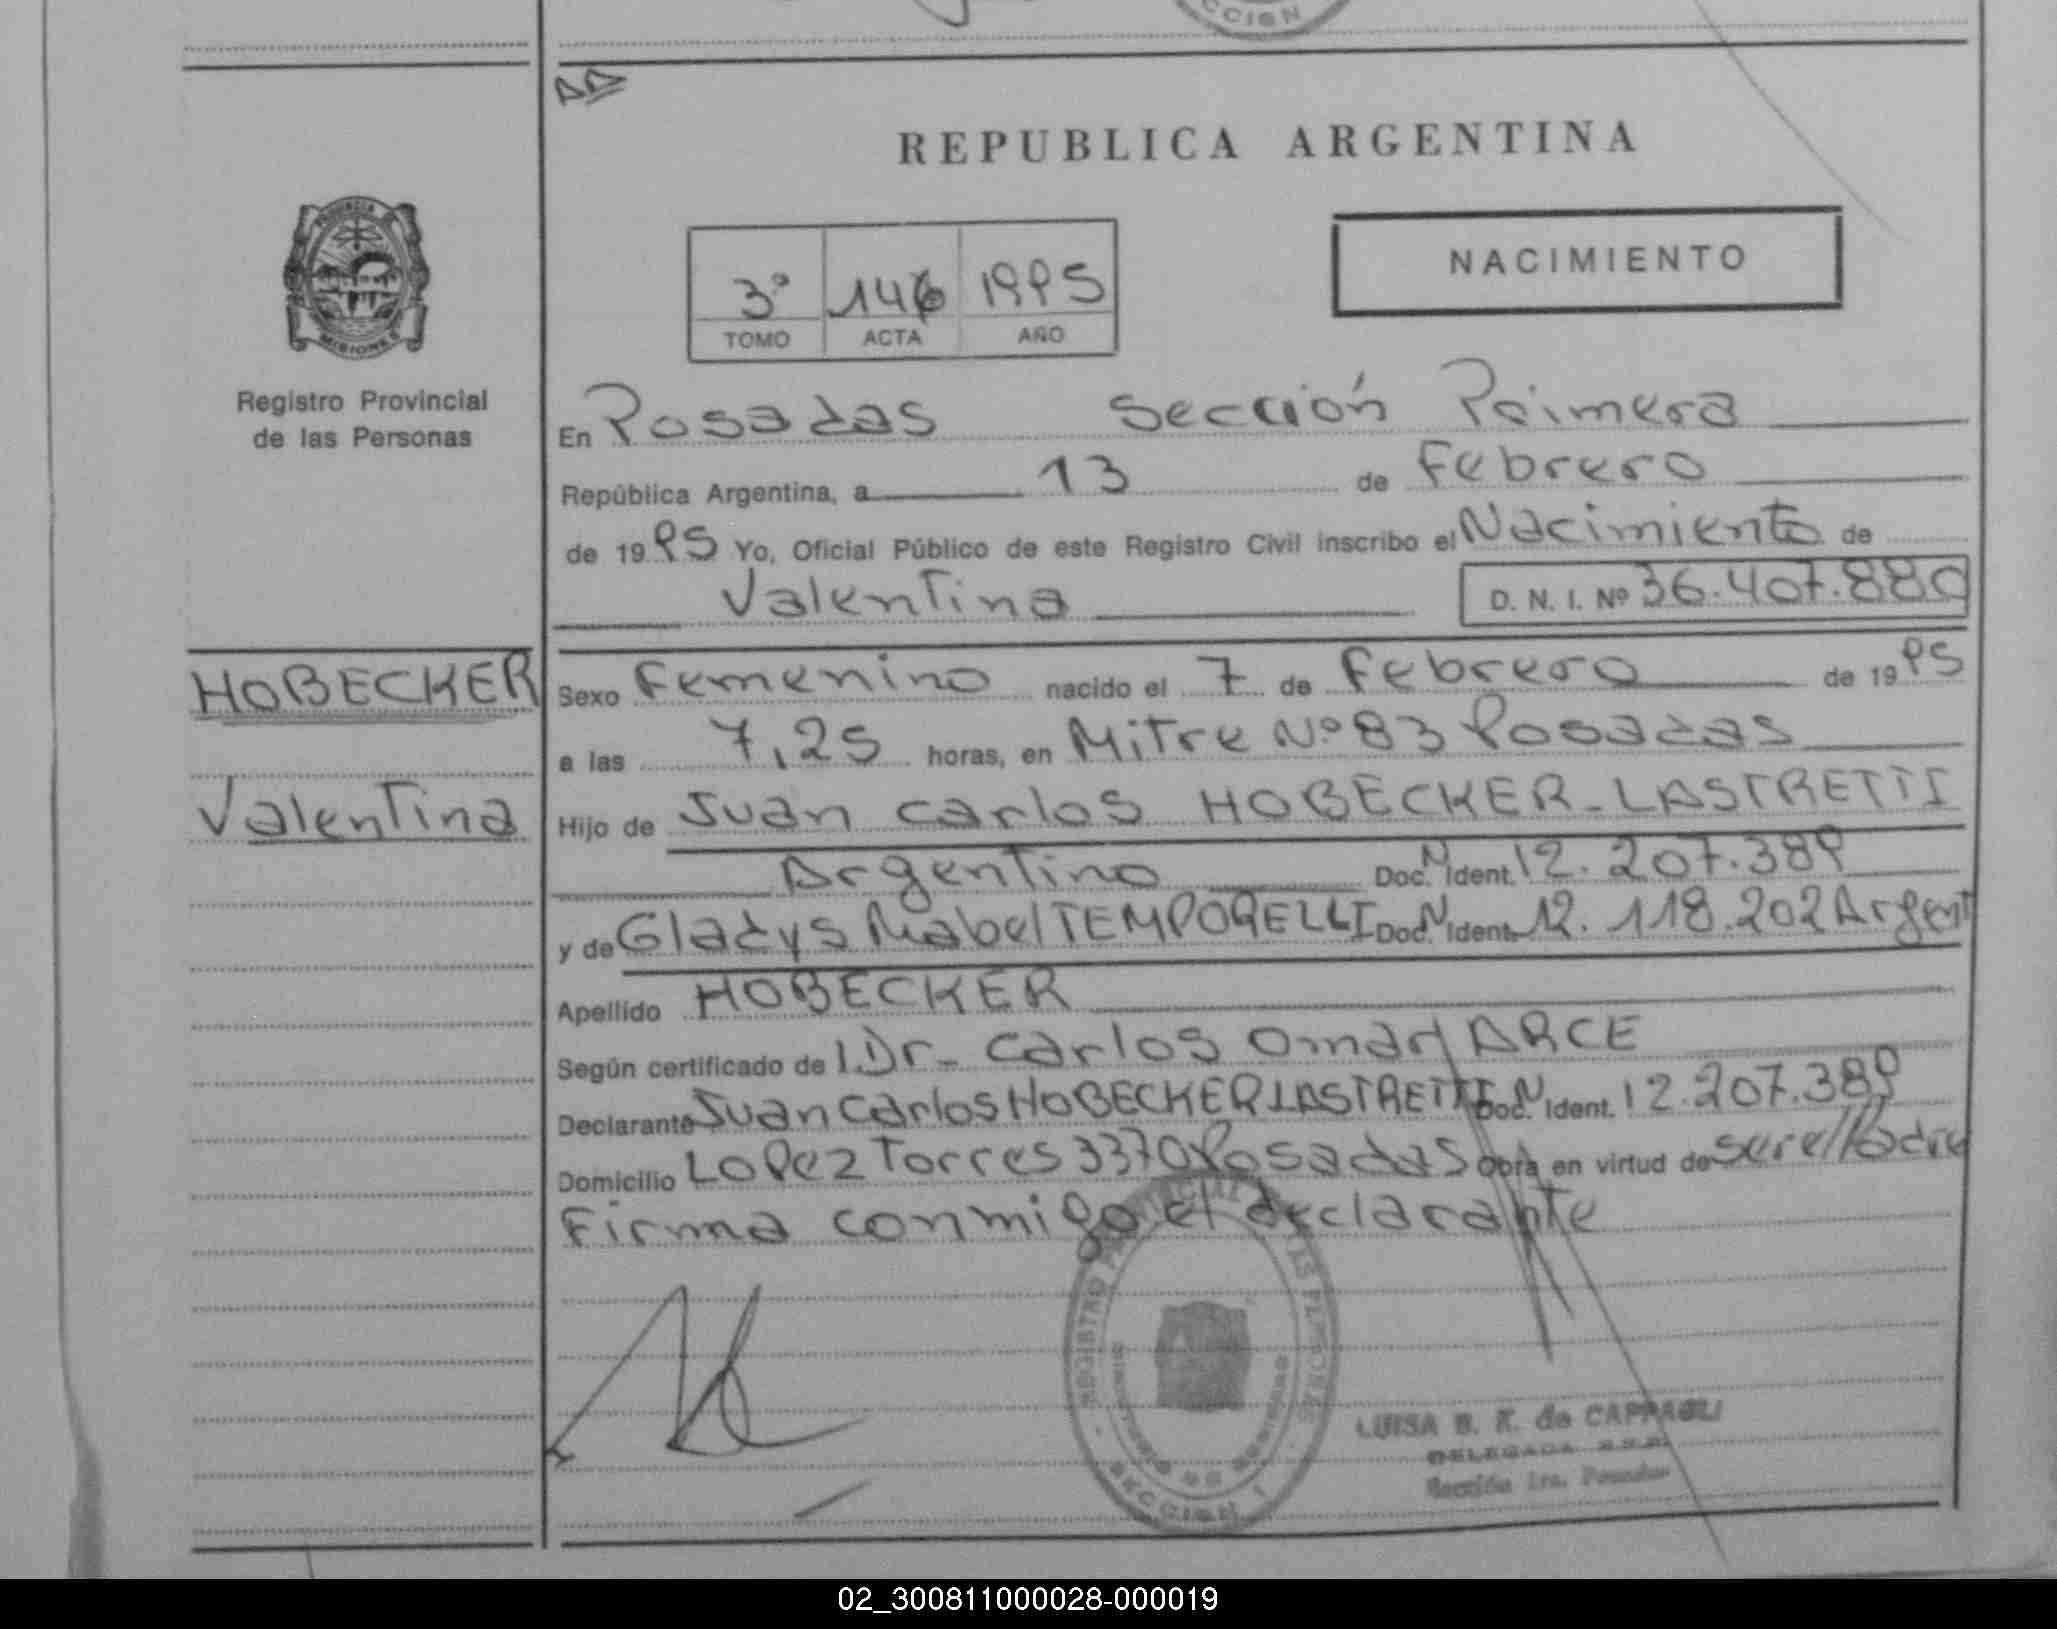 CCION
REPUBLICA ARGENTINA
PROVINCIA DE
MISIONES
Registro Provincial
de las Personas
3º 146 1995
TOMO ACTA AÑO
NACIMIENTO
En Posadas Sección Primera
República Argentina, a 13 de Febrero
de 1995 Yo, Oficial Público de este Registro Civil inscribo el Nacimiento de
Valentina D. N. I. Nº 36.407.880
HOBECKER
Valentina
Sexo Femenino nacido el 7 de Febrero de 1995
a las 7,25 horas, en Mitre Nº 83 Posadas
Hijo de Juan Carlos HOBECKER-LASTRETTI
Argentino Doc. N. Ident. 12.207.389
y de Gladys Mabel TEMPORELLI Doc. N. Ident. 12.118.202 Argent
Apellido HOBECKER
Según certificado de Dr- Carlos Omar ARCE
Declarante Juan Carlos HOBECKER LASTRETTI Doc. N. Ident. 12.207.389
Domicilio Lopez Torres 3370 Posadas Obra en virtud de ser el Padre
Firma conmigo el declarante
REGISTRO PROVINCIAL DE LAS PERSONAS
MINISTERIO DE GOBIERNO
SECCION 1
LUISA B. K. de CAPPAGLI
DELEGADA R.P.P.
Sección 1ra. Posadas
02_300811000028-000019